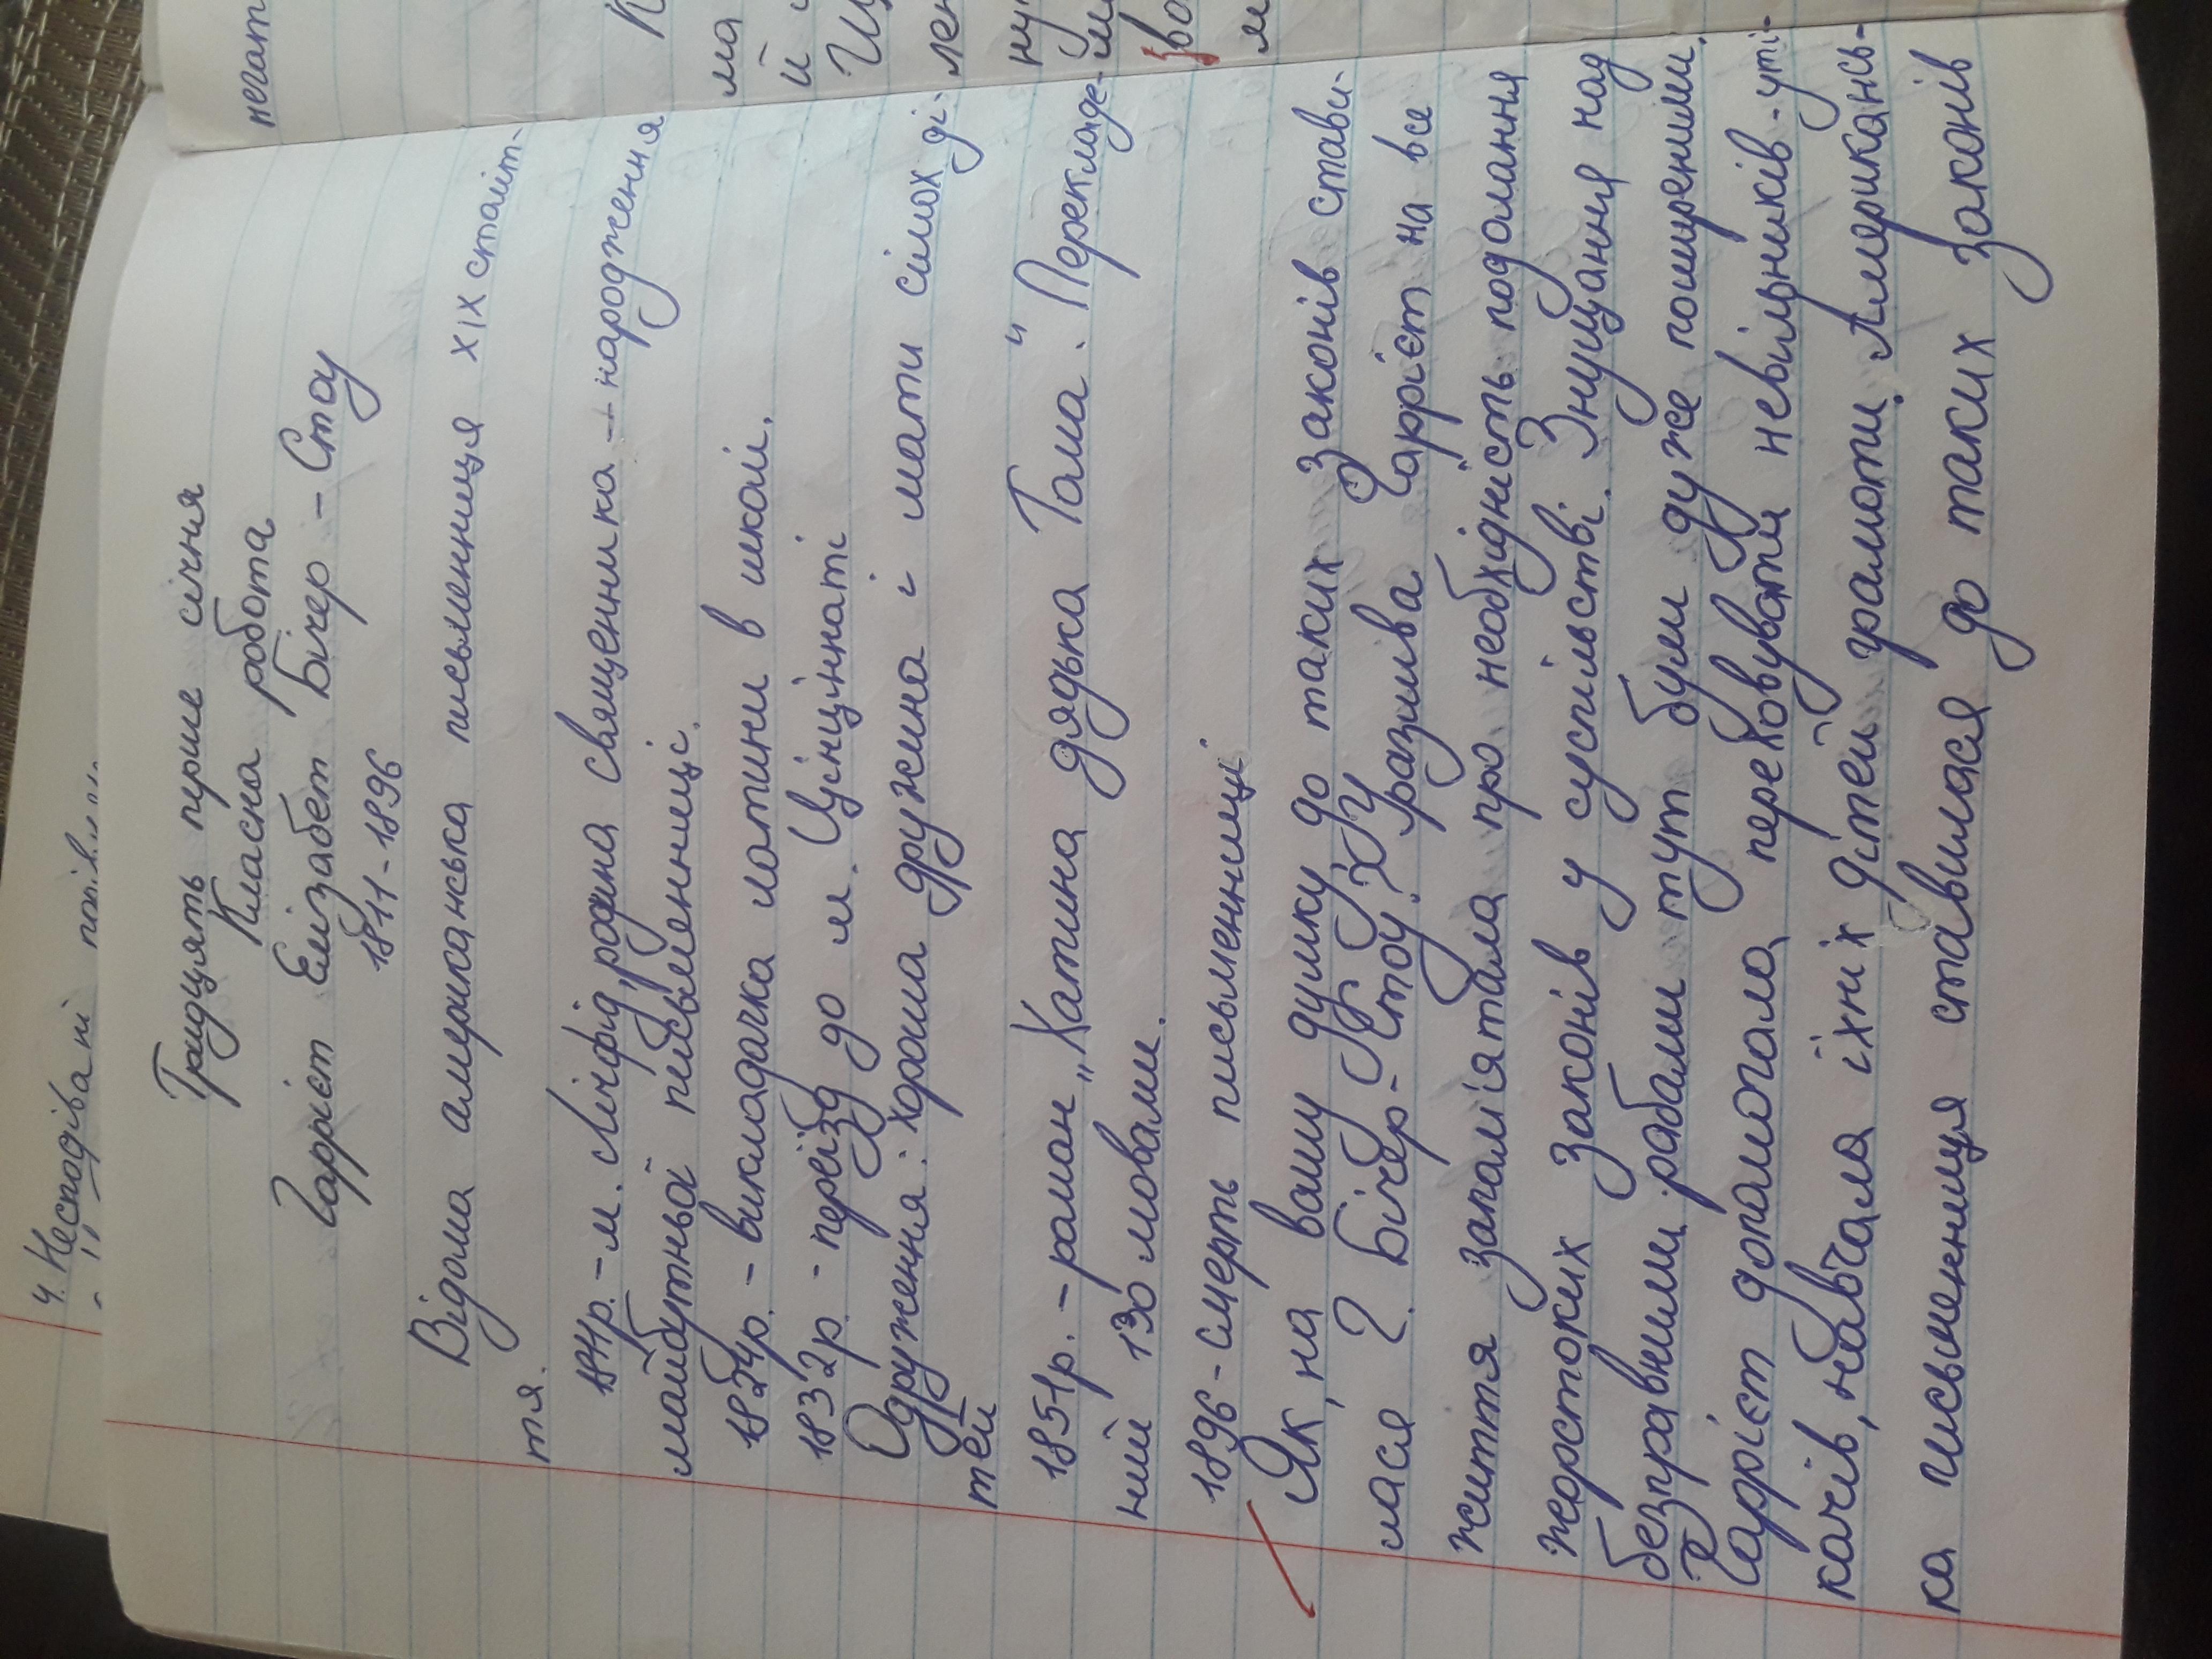 4. Несподівані
Тридцять перше січня
Класна робота
Гаррієт Елізабет Бічер - Стоу
1811-1896
Відома американська письменниця XIX століт-
тя.
1811р. - м. Лічфід, родина священника - народження
майбутньої письменниці.
1824р. - викладачка латини в школі.
1832р. - переїзд до м. Цінціннаті
Одруження: хороша дружина і мати сімох ді-
тей
1851р. - роман „Хатина дядька Тома." Перекладе-
ний 130 мовами.
1896 - смерть письменниці.
Як, на вашу думку до таких законів стави-
лася Г. Бічер - Стоу? Ху разила Гаррієт на все
життя запам'ятала про необхідність подолання
жорстоких законів у суспільстві. Знущання над
безправними рабами тут були дуже поширеними.
Гаррієт допомогала переховувати невільників-уті-
качів, навчала їхніх дітей грамоти. Американсь-
ка письменниця ставилася до таких законів
негат
ма
й